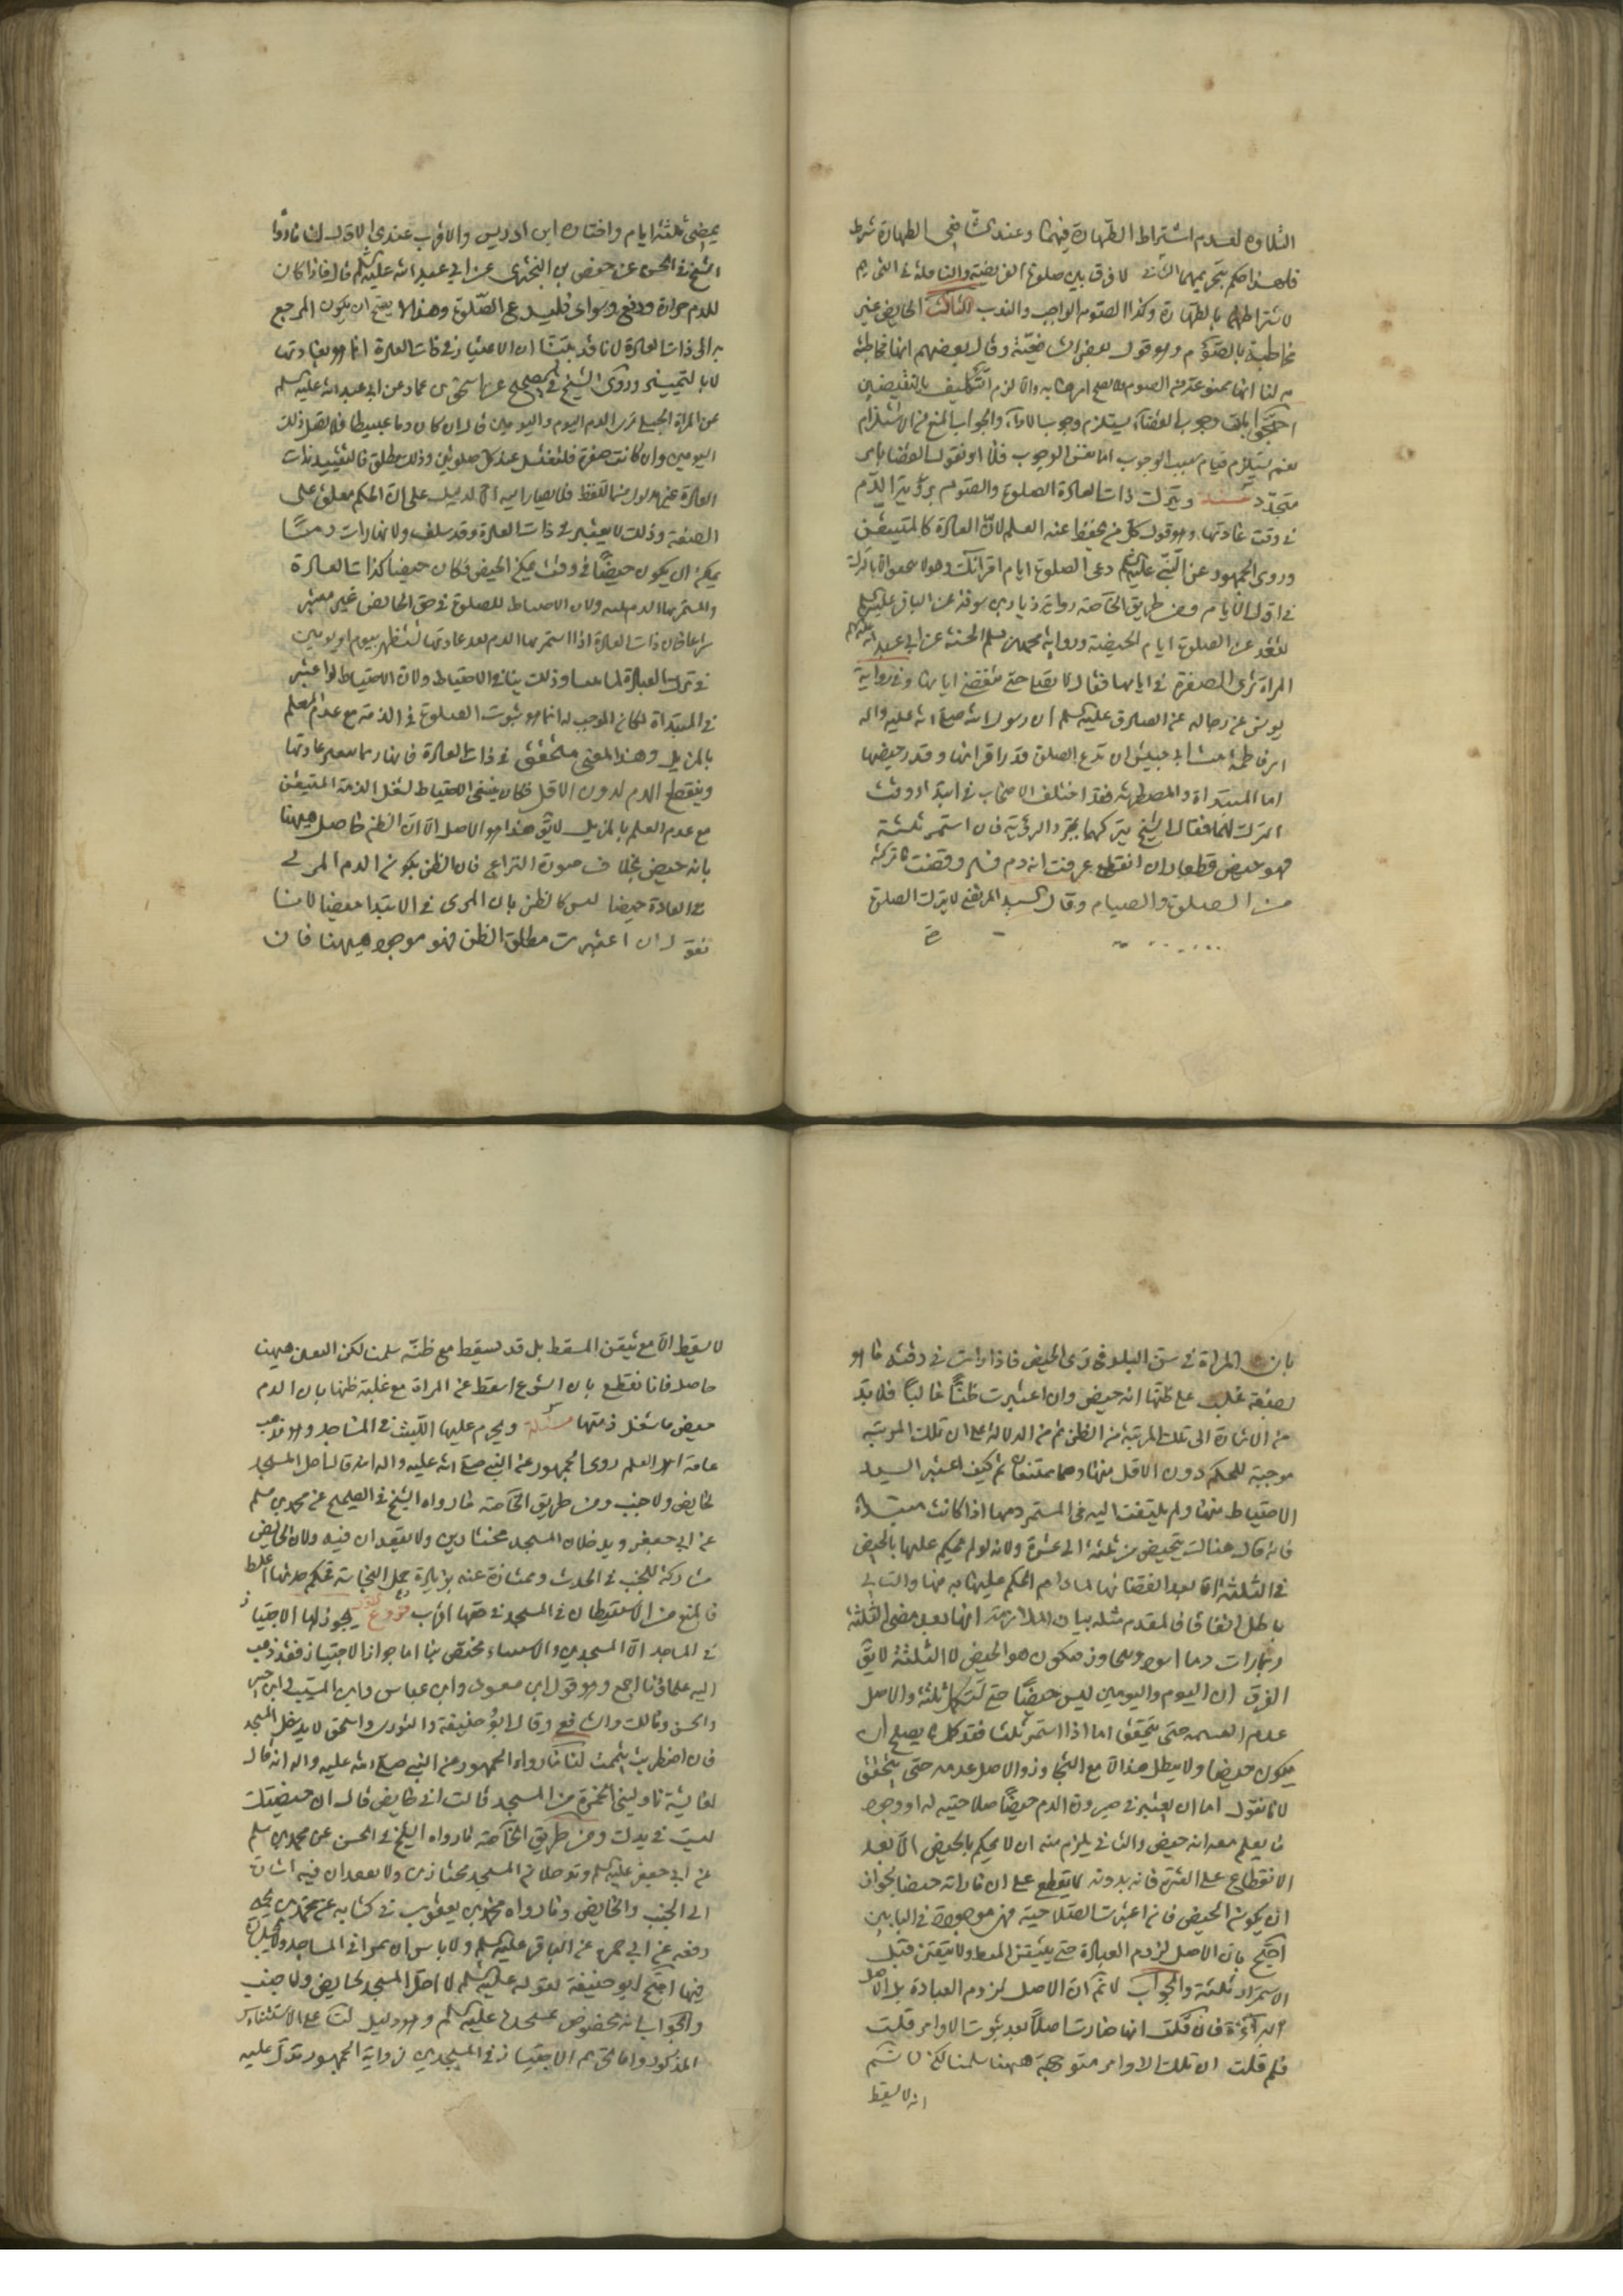 التلاوه لعدم اشتراط الطهارة فيهما وعند الشافعي الطهارة شرط
فلهذا حكم بتحريمهما الثاني لا فرق بين صلوة الفريضة والنافلة في التحريم
لاشتراطهما بالطهارة وكذا الصوم الواجب والندب الثالث الحايض غير
مخاطبة بالصوم وهو قول بعض الشافعية وقال بعضهم انها مخاطبة
به لنا انها ممنوعة من الصوم فلا يصح امرها به والا لزم التكليف بالنقيضين
احتجوا بان وجوب القضاء يستلزم وجوب الاداء والجواب المنع من الاستلزام
نعم يستلزم قيام سبب الوجوب اما نفس الوجوب فلا او نقول القضا بامر
متجدد مسئلة وتترك ذات العادة الصلوة والصوم برؤية الدم
في وقت عادتها وهو قول كل من يحفظ عنه العلم لان العادة كالمتيقن
وروى الجمهور عن النبي عليه السلم دعي الصلوة ايام اقرائك
في اول الايام ومن طريق الخاصة رواية زياد بن سوقة عن الباقر عليه السلم
لتقعد عن الصلوة ايام الحيض ورواية محمد بن مسلم الحسنة عن ابي عبد الله عليه السلم
المراة ترى الصفرة في ايامها فقال لا تصلي حتى تنقضي ايامها وفي رواية
يونس عن رجاله عن الصادق عليه السلم ان رسول الله صلى الله عليه واله
امر فاطمة بنت ابي حبيش ان تدع الصلوة قدر اقرائها وقدر حيضها
اما المبتداة والمضطربة فقد اختلف الاصحاب في ابتداء وقت
الترك لهما فقال الشيخ يتركهما بمجرد الرؤية فان استمر ثلثة
فهو حيض قطعا وان انقطع عرفت انه دم فسد وقضت ما تركته
من الصلوة والصيام وقال السيد المرتضى لا يترك الصلوة
يمضي ثلثة ايام واختاره ابن ادريس والاقرب عندي الاول لنا ما رواه
الشيخ في الحسن عن حفص بن البختري عن ابي عبد الله عليه السلم قال فاذا كان
للدم حرارة ودفع وسواد فلتدع الصلوة وهذا لا يصح ان يكون المرجع
به الى ذات العادة لانا قد بينا ان الاعتبار في ذات العادة انما هو بعادتها
لا بالتمييز وروى الشيخ في الصحيح عن اسحق بن عمار عن ابي عبد الله عليه السلم
عن المراة الحبلى ترى الدم اليوم واليومين قال ان كان دما عبيطا فلا تصل ذلك
اليومين وان كانت صفرة فلتغتسل عند كل صلوتين وذلك مطلق فالتقييد بذات
العادة غير مدلول من اللفظ فلا يصار اليه الا لدليل على ان الحكم معلق على
الصفة وذلك لا يعتبر في ذات العادة وقد سلف ولانها رات دما
يمكن ان يكون حيضا في وقت يمكن الحيض فكان حيضا كذات العادة
والمستمر بها الدم ولان الاحتياط للصلوة في حق الحايض غير معتبر
شرعا فان ذات العادة اذا استمر بها الدم بعد عادتها تستظهر بيوم او يومين
في ترك العبادة وذلك ينافي الاحتياط ولان الاحتياط لو اعتبر
في المبتداة لكان الموجب له انما هو ثبوت الصلوة في الذمة مع عدم العلم
بالمزيل وهذا المعنى متحقق في ذات العادة فانها ربما تتغير عادتها
وينقطع الدم لدون الاقل فكان ينبغي الاحتياط لشغل الذمة المتيقن
مع عدم العلم بالمزيل لا يق هذا هو الاصل الا ان الظن حاصل هيهنا
بانه حيض بخلاف صورة النزاع فان الظن بكون الدم المرئي
في العادة حيضا ليس كالظن بان المرئي في الابتدا حيضا لانا
نقول ان اعتبرت مطلق الظن فهو موجود هيهنا فان
بان المراة في سن البلوغ ترى الحيض فاذا رات في وقته ما هو
بصفته غلب على ظنها انه حيض وان اعتبرت ظنا غالبا فلا بد
من الاشارة الى تلك المرتبة من الظن ثم من الدلالة على ان تلك المرتبة
موجبة للحكم دون الاقل منها وهما ممتنعان ثم كيف اعتبر السيد
الاحتياط هنا ولم يلتفت اليه في المستمر دمها اذا كانت مبتداة
فانه قال هناك يتحيض من ثلثة الى عشرة ولانه لو لم يحكم عليها بالحيض
في الثلثة الا بعد انقضائها لما دام الحكم عليها به فيها والتالي
باطل اتفاقا فالمقدم مثله بيان الملازمة انها بعد مضي الثلثة
ربما رات دما اسود وتجاوز فيكون هو الحيض لا الثلثة لا يق
الفرق ان اليوم واليومين ليس حيضا حتى تستكمل ثلثة والاصل
عدم التتمة حتى يتحقق اما اذا استمر ثلثا فقد كمل ما يصلح ان
يكون حيضا ولا يبطل هذا الا مع التجاوز والاصل عدمه حتى يتحقق
لانا نقول اما ان يعتبر في صيرورة الدم حيضا صلاحيته له او وجود
ما يعلم معه انه حيض والثاني يلزم منه ان لا يحكم بالحيض الا بعد
الانقطاع على العشرة فانه بدونه لا يقطع على ان ما راته حيضا لجواز
ان يكون الحيض فان اعتبرت الصلاحية فهي موجودة في البابين
احتج بان الاصل لزوم العبادة حتى يتيقن المسقط ولا يتيقن قبل
الاستمرار ثلثة والجواب لا نم ان الاصل لزوم العبادة بل الاصل
البراءة فان قلت انها صارت اصلا بعد ثبوت الاوامر قلت
فلم قلت ان تلك الاوامر متوجهة هيهنا سلمنا لكن لا نسلم
انه لا يسقط
لا يسقط الا مع تيقن المسقط بل قد يسقط مع ظنه سلمنا لكن اليقين هيهنا
حاصل فانا نقطع بان الشرع اسقط عن المراة مع غلبة ظنها بان الدم
حيض ما شغل ذمتها مسئلة ويحرم عليها اللبث في المساجد وهو مذهب
عامة اهل العلم روى الجمهور عن النبي صلى الله عليه واله انه قال لا احل المسجد
لحايض ولا جنب ومن طريق الخاصة ما رواه الشيخ في الصحيح عن محمد بن مسلم
عن ابي جعفر ويدخلان المسجد مجتازين ولا يقعدان فيه ولان الحايض
مشاركة للجنب في الحدث وممتازة عنه بزيادة حمل النجاسة فحكم حدثها اغلط
فالمنع من الاستيطان في المسجد في حقها اقرب فروع الاول يجوز لها الاجتياز
في المساجد الا المسجدين والاستثناء مختص بنا اما جواز الاجتياز فقد ذهب
اليه علماؤنا اجمع وهو قول ابن مسعود وابن عباس وابن المسيب وابن جبير
والحسن ومالك والشافعي وقال ابو حنيفة والثوري واسحق لا يدخل المسجد
فان اضطرت تيممت لنا ما رواه الجمهور عن النبي صلى الله عليه واله انه قال
لعايشة ناوليني الخمرة من المسجد قالت اني حايض قال ان حيضتك
ليست في يدك ومن طريق الخاصة ما رواه الشيخ في الحسن عن محمد بن مسلم
عن ابي جعفر عليه السلم ويدخلان المسجد مجتازين ولا يقعدان فيه اشارة
الى الجنب والحايض وما رواه محمد بن يعقوب في كتابه عن محمد بن يحيى
رفعه عن ابي حمزة عن الباقر عليه السلم ولا باس ان يمرا في المساجد ولا يجلسان
فيها احتج ابو حنيفة بقوله عليه السلم لا احل المسجد لحايض ولا جنب
والجواب انه مخصوص بمسجده عليه السلم وهو دليل لنا على الاستثناء
المذكور واما تحريم الاجتياز في المسجدين فرواية الجمهور تدل عليه